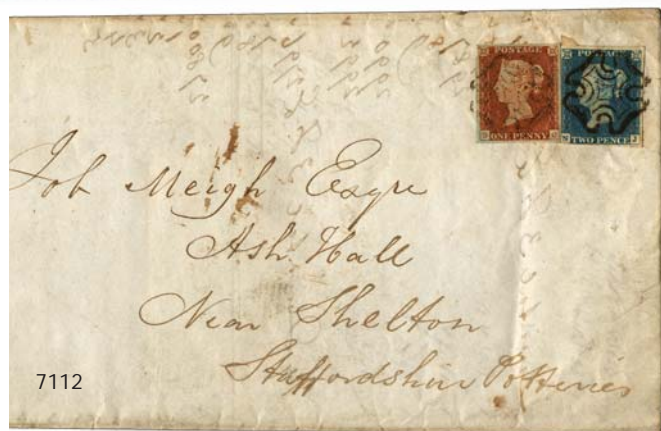 POSTAGE
ONE PENNY
POSTAGE
TWO PENCE
Job Meigh Esqre
Ash Hall
Near Shelton
Staffordshire Potteries
7112